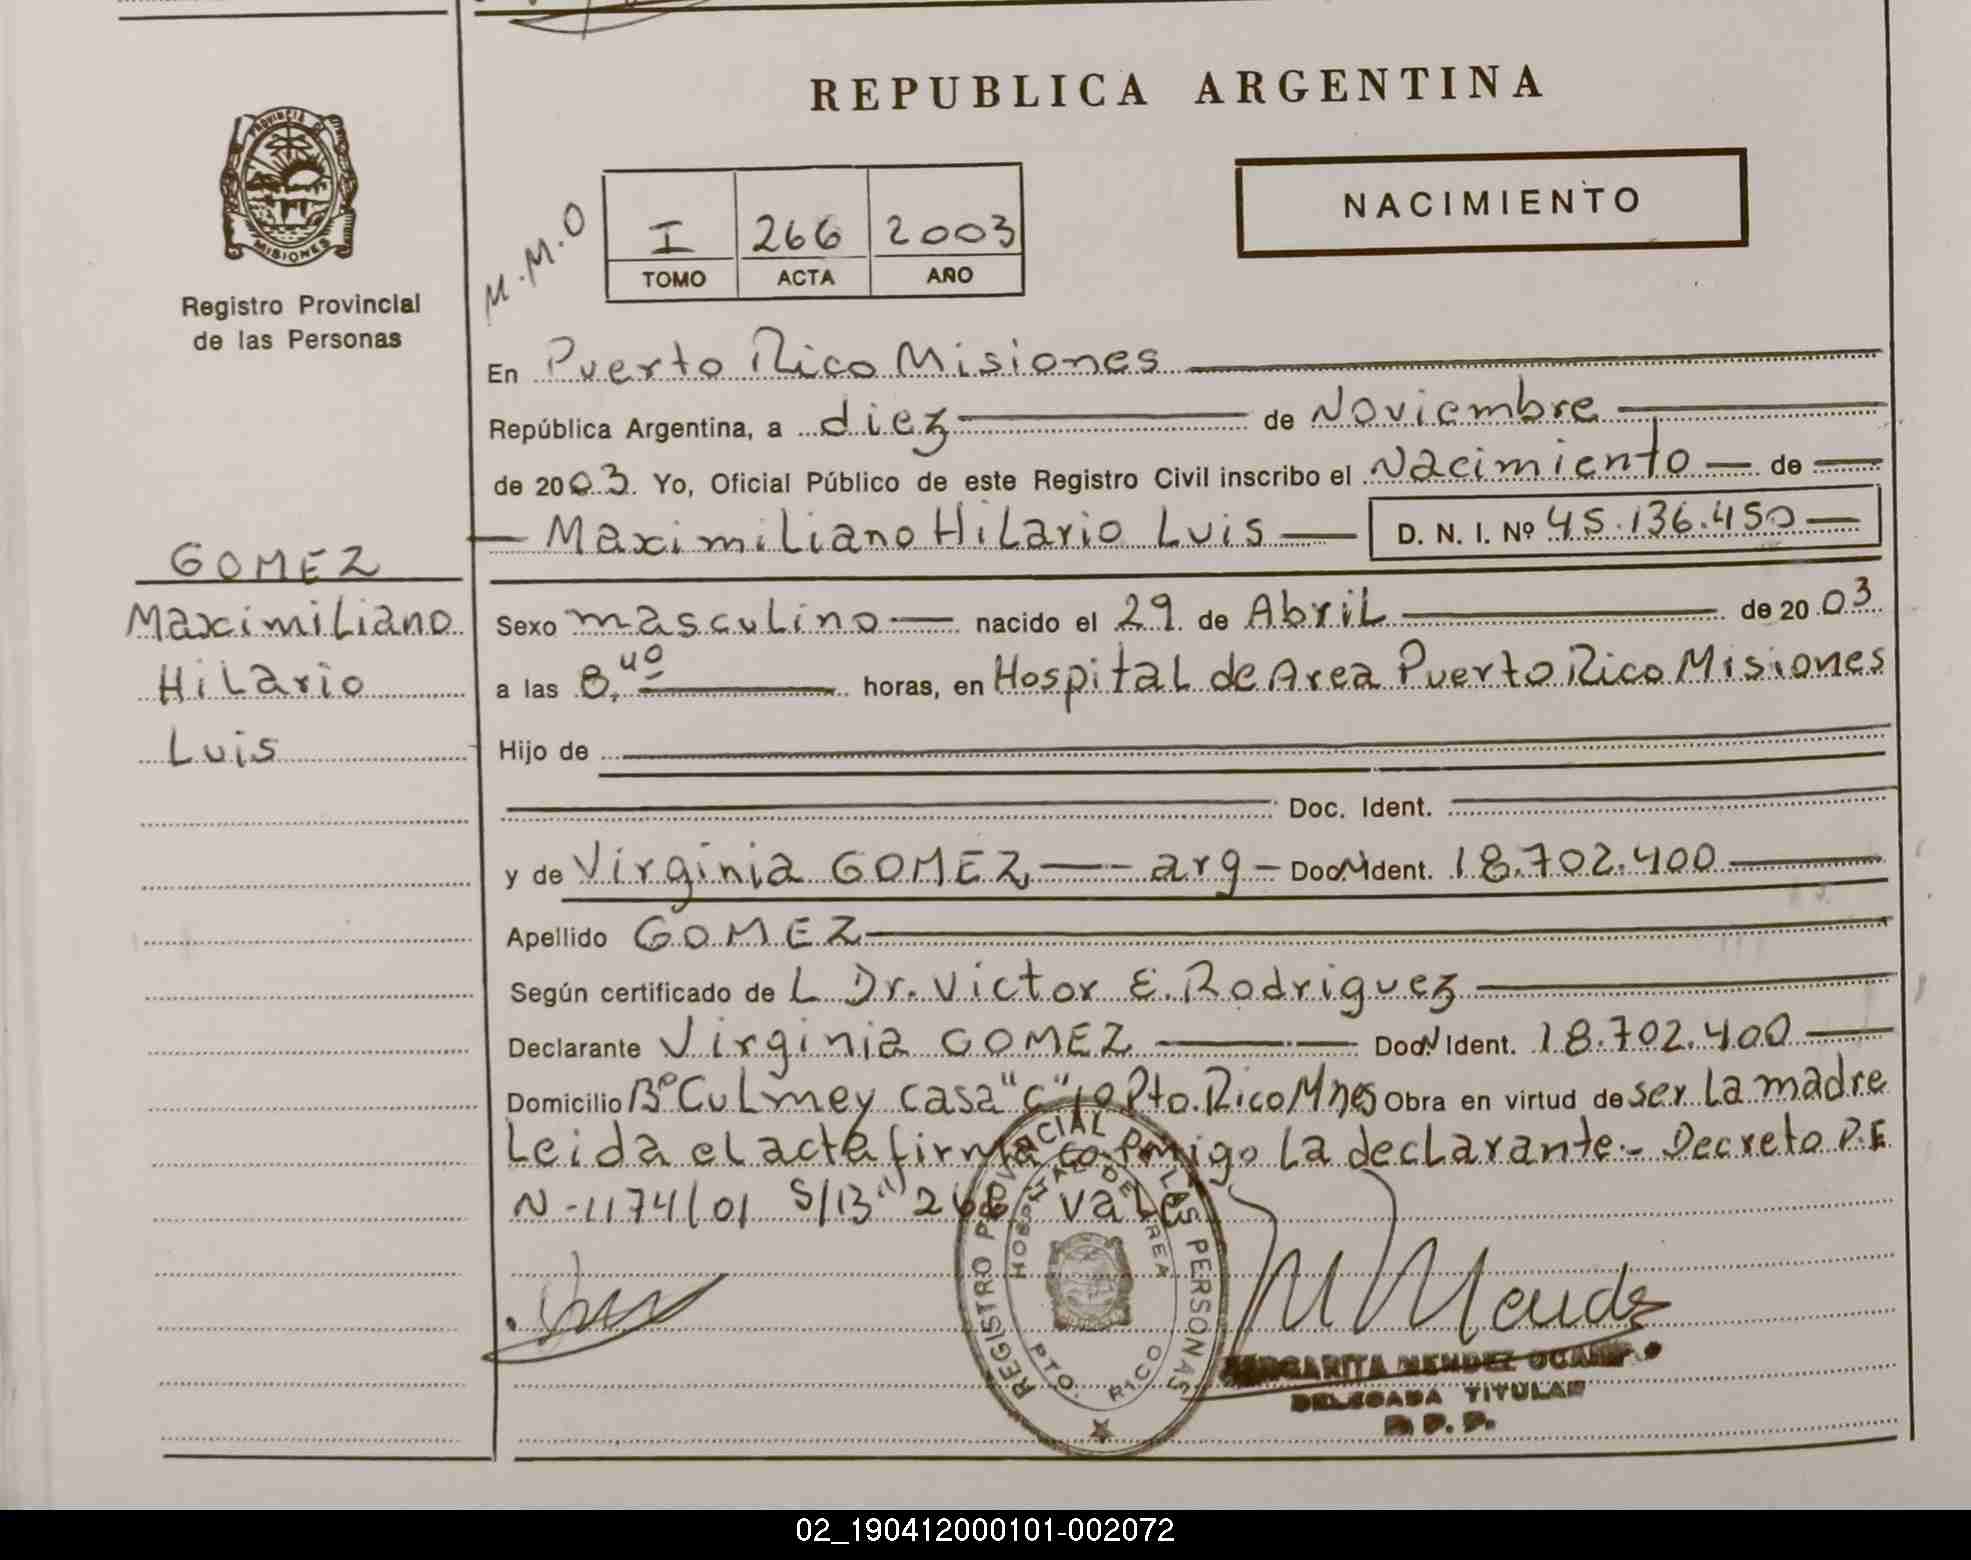 REPUBLICA ARGENTINA
PROVINCIA DE
MISIONES
Registro Provincial
de las Personas
M.M.O
I 266 2003
TOMO ACTA AÑO
NACIMIENTO
En Puerto Rico Misiones
República Argentina, a diez de Noviembre
de 2003. Yo, Oficial Público de este Registro Civil inscribo el Nacimiento de
Maximiliano Hilario Luis D. N. I. Nº 45.136.450
GOMEZ
Maximiliano
Hilario
Luis
Sexo masculino nacido el 29 de Abril de 2003
a las 8,40 horas, en Hospital de Area Puerto Rico Misiones
Hijo de
Doc. Ident.
y de Virginia GOMEZ arg - Doc. Ident. 18.702.400
Apellido GOMEZ
Según certificado de L Dr. Victor E. Rodriguez
Declarante Virginia GOMEZ Doc. Ident. 18.702.400
Domicilio Bº Culmey casa "C" 10 Pto. Rico Mnes Obra en virtud de ser la madre
Leida el acta firma conmigo la declarante.- Decreto P.E
N-1174/01 S/B "266" vale
REGISTRO PROVINCIAL DE LAS PERSONAS
HOSPITAL DE AREA
PTO. RICO
M Mendez
MARGARITA MENDEZ OCAMPO
DELEGADA TITULAR
R.P.P.
02_190412000101-002072